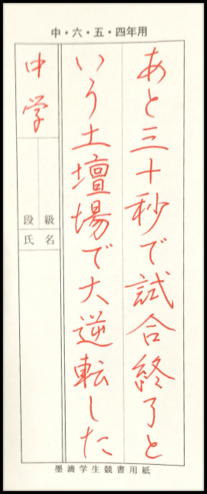 中・六・五・四年用
あと三十秒で試合終了と
いう土壇場で大逆転した
中学
段級
氏名
墨濤学生競書用紙